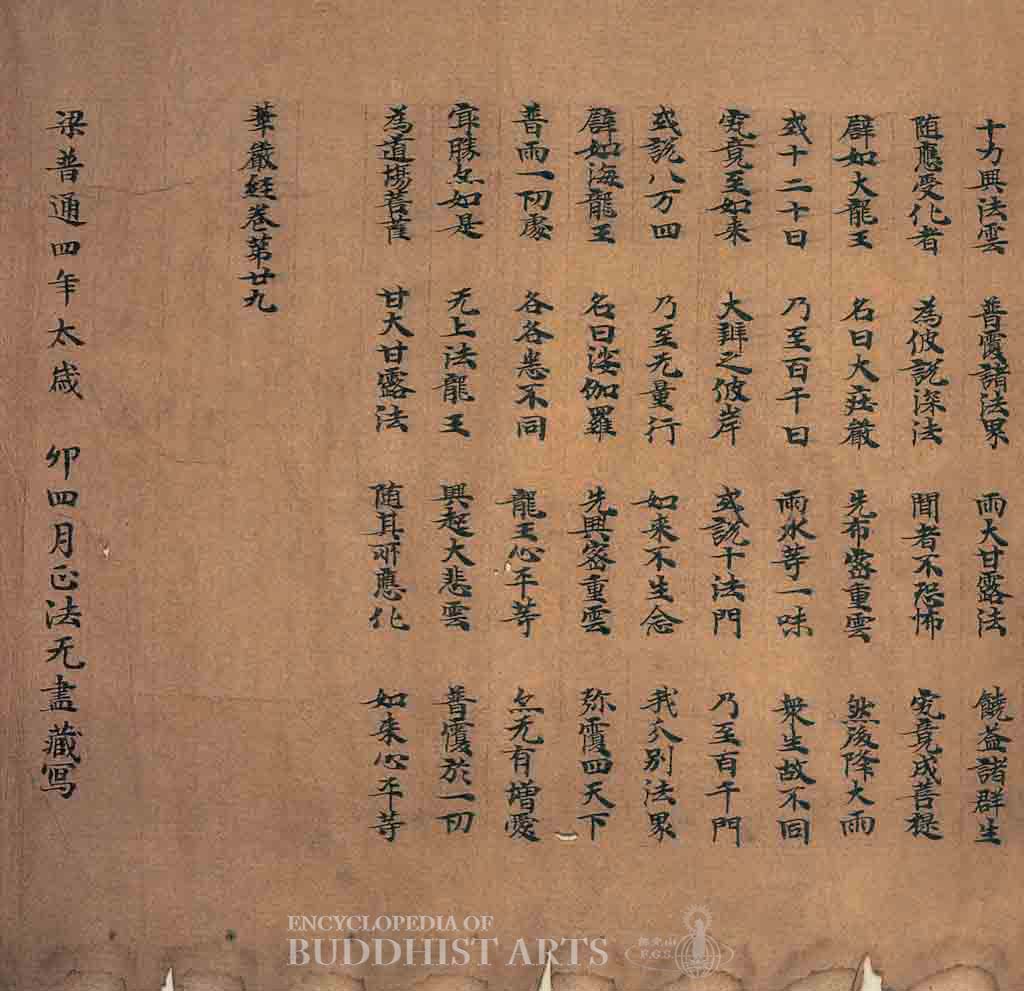 十力興法雲 普覆諸法界 雨大甘露法 饒益諸群生
随應受化者 為彼說深法 聞者不恐怖 究竟成菩提
譬如大龍王 名曰大莊嚴 先布密重雲 然後降大雨
或十二十日 乃至百千日 雨水等一味 衆生故不同
究竟至如来 大辯之彼岸 或說十法門 乃至百千門
或說八万四 乃至无量行 如来不生念 我分別法界
譬如海龍王 名曰娑伽羅 先興密重雲 弥覆四天下
普雨一切處 各各悉不同 龍王心平等 亦无有増愛
㝡勝亦如是 无上法龍王 興起大悲雲 普覆於一切
為道場菩薩 甘大甘露法 随其所應化 如来心平等
華嚴經卷第廿九
梁普通四年太歳 卯四月正法无盡藏写
ENCYCLOPEDIA OF
BUDDHIST ARTS
佛光山
F.G.S.